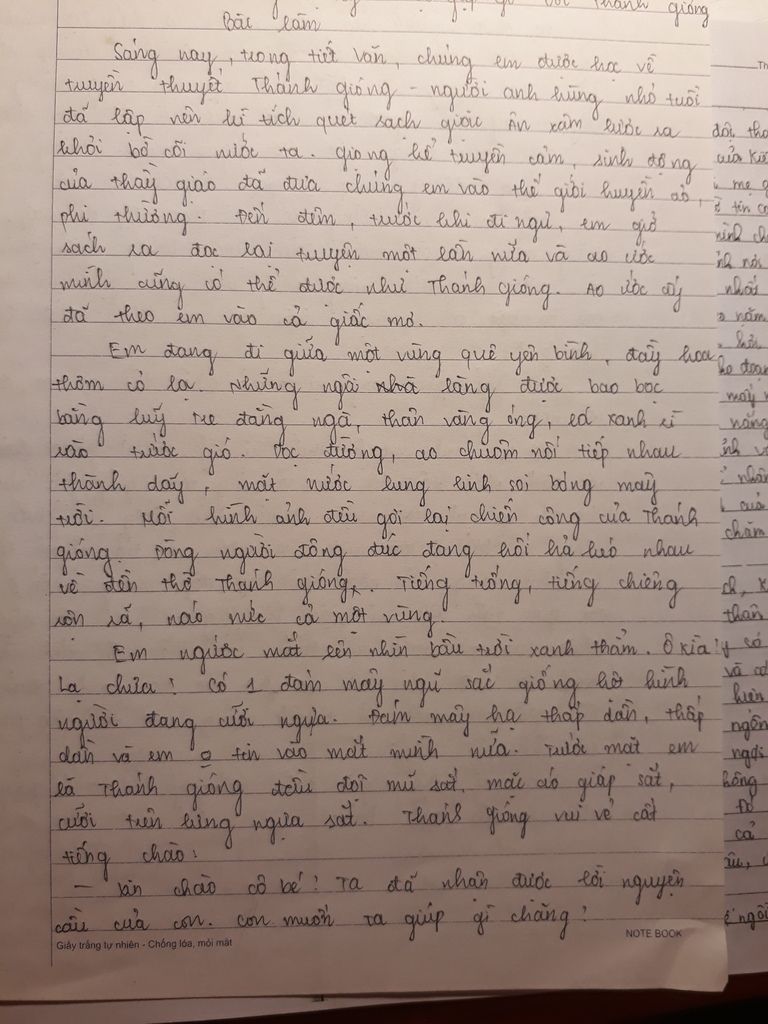 gì với Thánh gióng
Bài làm
Sáng nay, trong tiết văn, chúng em được học về
truyền thuyết Thánh gióng - người anh hùng nhỏ tuổi
đã lập nên kì tích quét sạch giặc Ân xâm lược ra
khỏi bờ cõi nước ta. giọng kể truyền cảm, sinh động
của thầy giáo đã đưa chúng em vào thế giới huyền ảo,
phi thường. Đến đêm, trước khi đi ngủ, em giở
sách ra đọc lại truyện một lần nữa và ao ước
mình cũng có thể được như Thánh gióng. Ao ước ấy
đã theo em vào cả giấc mơ.
Em đang đi giữa một vùng quê yên bình, đầy hoa
thơm cỏ lạ. Những ngôi nhà làng được bao bọc
bằng luỹ tre đằng ngà, thân vàng óng, lá xanh rì
rào trước gió. Dọc đường, ao chuôm nối tiếp nhau
thành dãy, mặt nước lung linh soi bóng mây
trời. Mỗi hình ảnh đều gợi lại chiến công của Thánh
gióng. Dòng người đông đúc đang hối hả kéo nhau
về đền thờ Thánh gióng. Tiếng trống, tiếng chiêng
rộn rã, náo nức cả một vùng.
Em ngước mắt lên nhìn bầu trời xanh thẳm. Ô kìa!
Lạ chưa! Có 1 đám mây ngũ sắc giống hệt hình
người đang cưỡi ngựa. Đám mây hạ thấp dần, thấp
dần và em o tin vào mắt mình nữa. Trước mắt em
là Thánh gióng đầu đội mũ sắt, mặc áo giáp sắt,
cưỡi trên lưng ngựa sắt. Thánh gióng vui vẻ cất
tiếng chào:
- Xin chào cô bé! Ta đã nhận được lời nguyện
cầu của con. Con muốn ta giúp gì chăng?
Giấy trắng tự nhiên - Chống lóa, mỏi mắt
NOTE BOOK